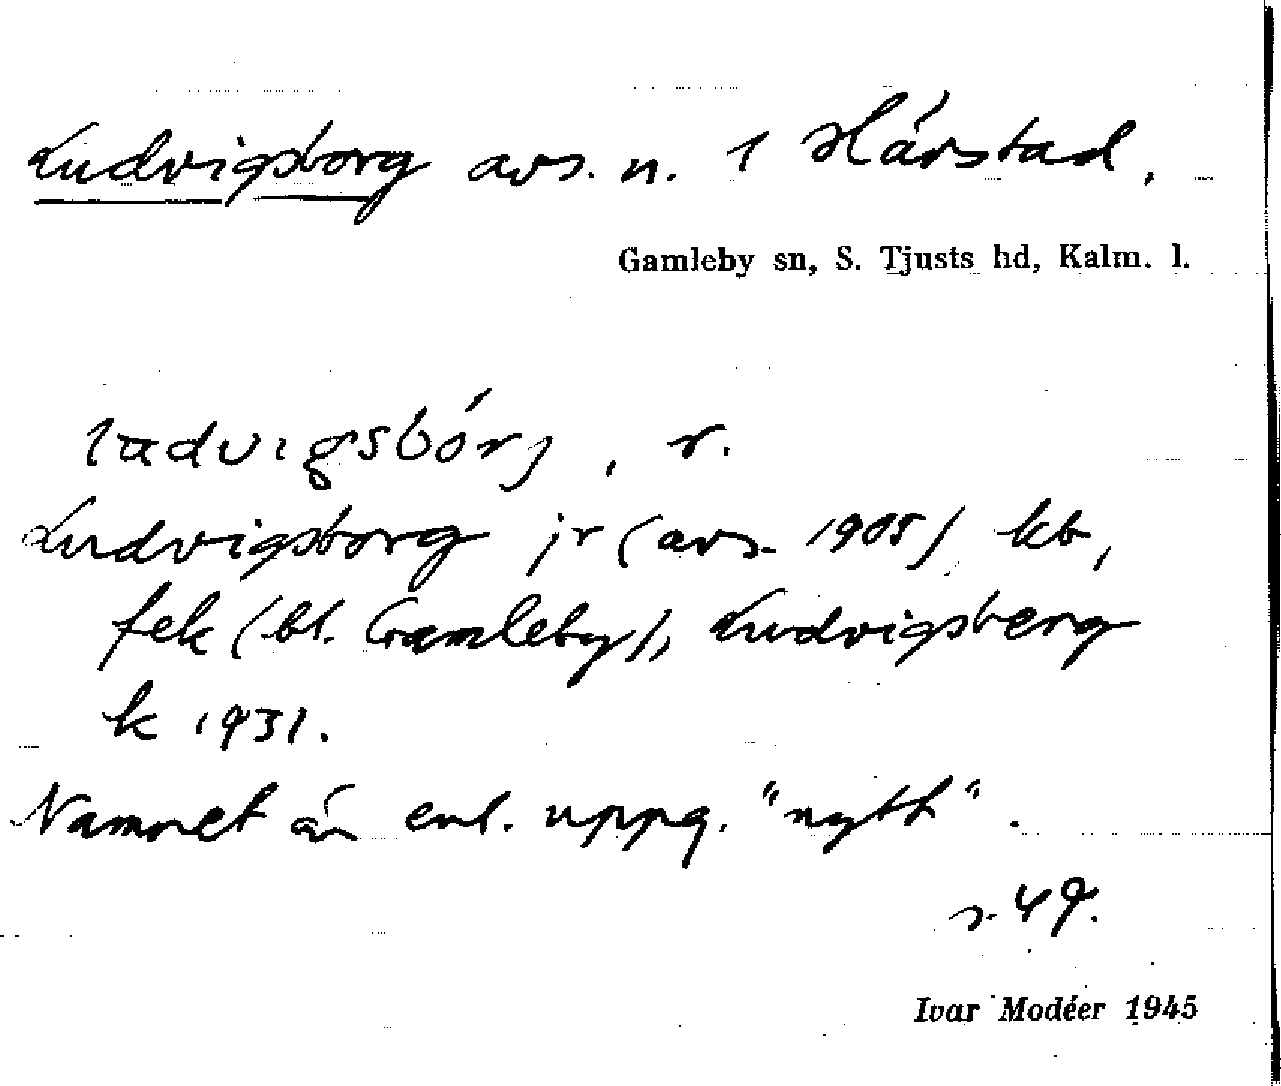 Ludvigsborg avs. n. 1 Hårstad.
Gamleby sn, S. Tjusts hd, Kalm. l.
ludvigsbórj, r.
Ludvigsborg jr (avs. 1905) kb,
fek (bl. Gamleby), Ludvigsberg
k 1931.
Namnet är enl. uppg. "nytt".
s. 49.
Ivar Modéer 1945